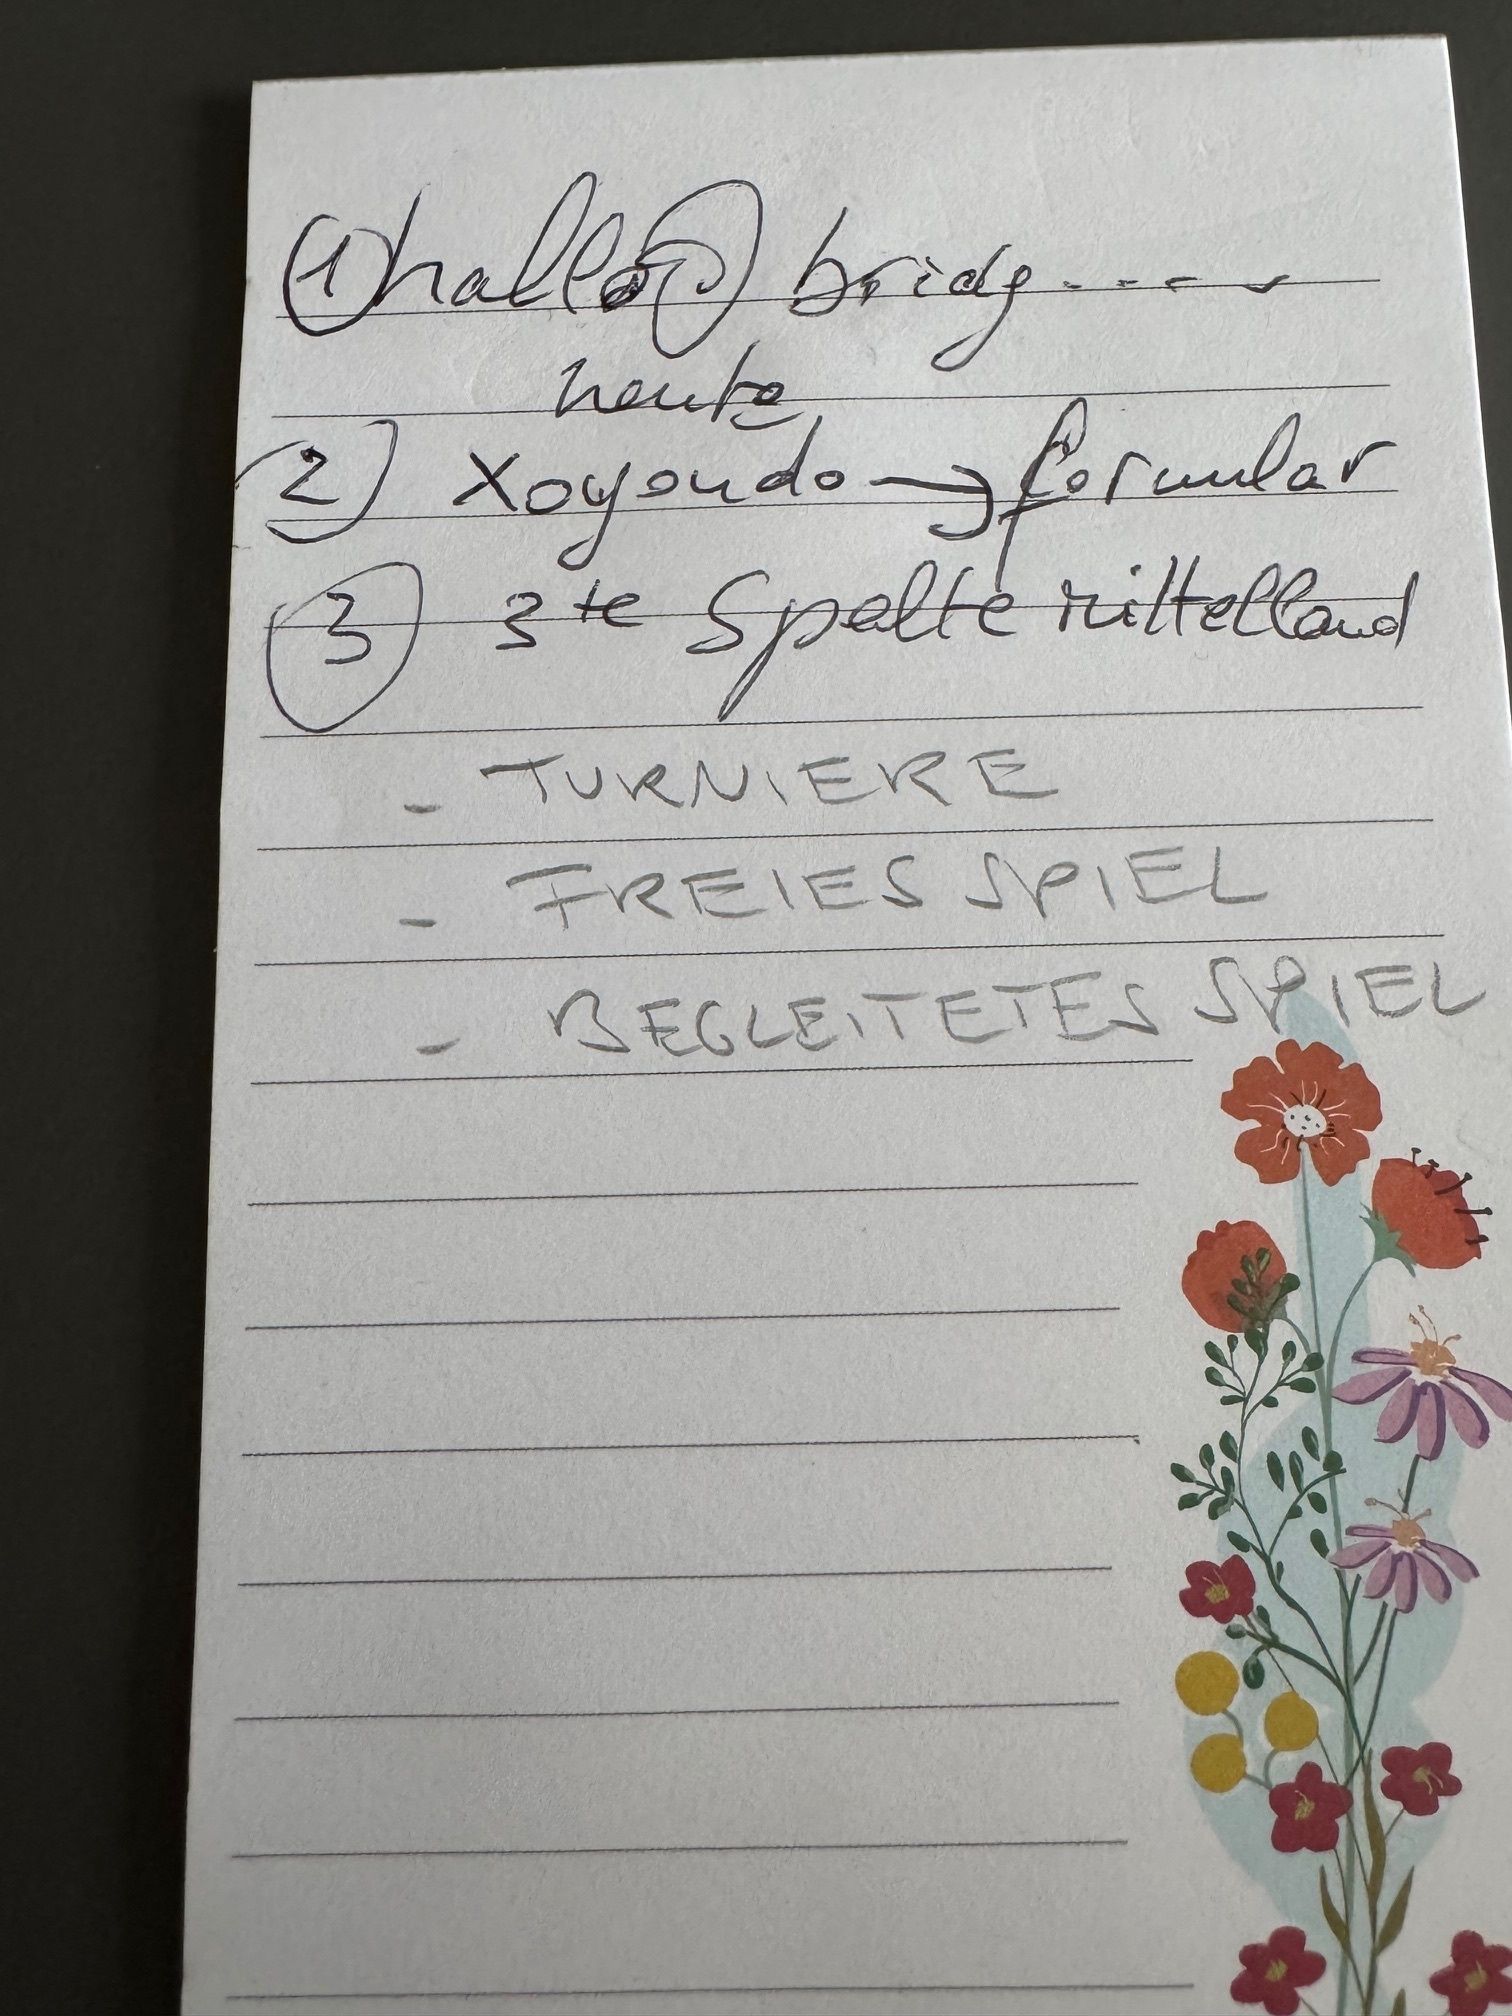 ① hallo@bridg.....
heute
② Xoyondo → formular
③ 3te Spalte mittelland
- TURNIERE
- FREIES SPIEL
- BEGLEITETES SPIEL